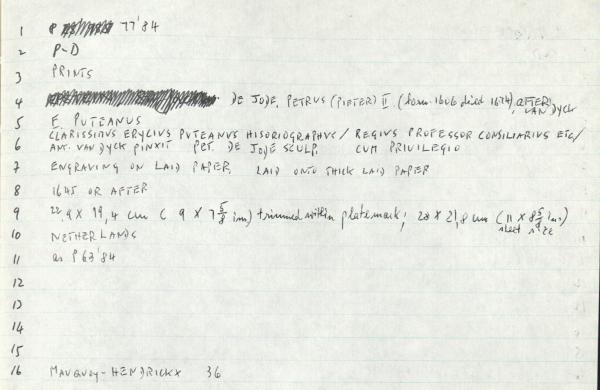 1 P 77'84
2 P-D
3 PRINTS
4 DE JODE, PETRUS (PIETER) II (born 1606 died 1674), AFTER VAN DYCK
5 E. PUTEANUS
6 CLARISSIMUS ERYCIUS PUTEANUS HISORIOGRAPHUS / REGIUS PROFESSOR CONSILIARIUS ETC/
ANT. VAN DYCK PINXIT PET. DE JODE SCULP. CUM PRIVILEGIO
7 ENGRAVING ON LAID PAPER, LAID ONTO THICK LAID PAPER
8 1645 OR AFTER
9 22.9 X 19,4 cm ( 9 X 7 5/8 ins) trimmed within platemark; 28 X 21,8 cm (11 X 8 5/8 ins) sheet size
10 NETHERLANDS
11 as P63'84
12
13
14
15
16 MAUQUOY-HENDRICKX 36